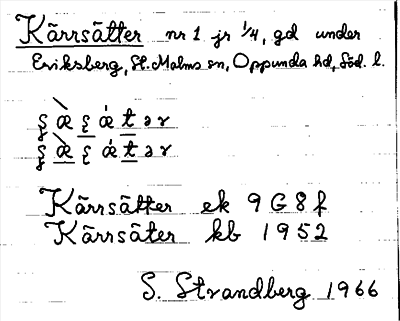 Kärrsätter nr 1 jr 1/4, gd under
Eriksberg, St. Malms sn, Oppunda hd, Söd. l.
Kärrsätter ek 9 G 8 f
Kärrsäter kb 1952
S. Strandberg 1966